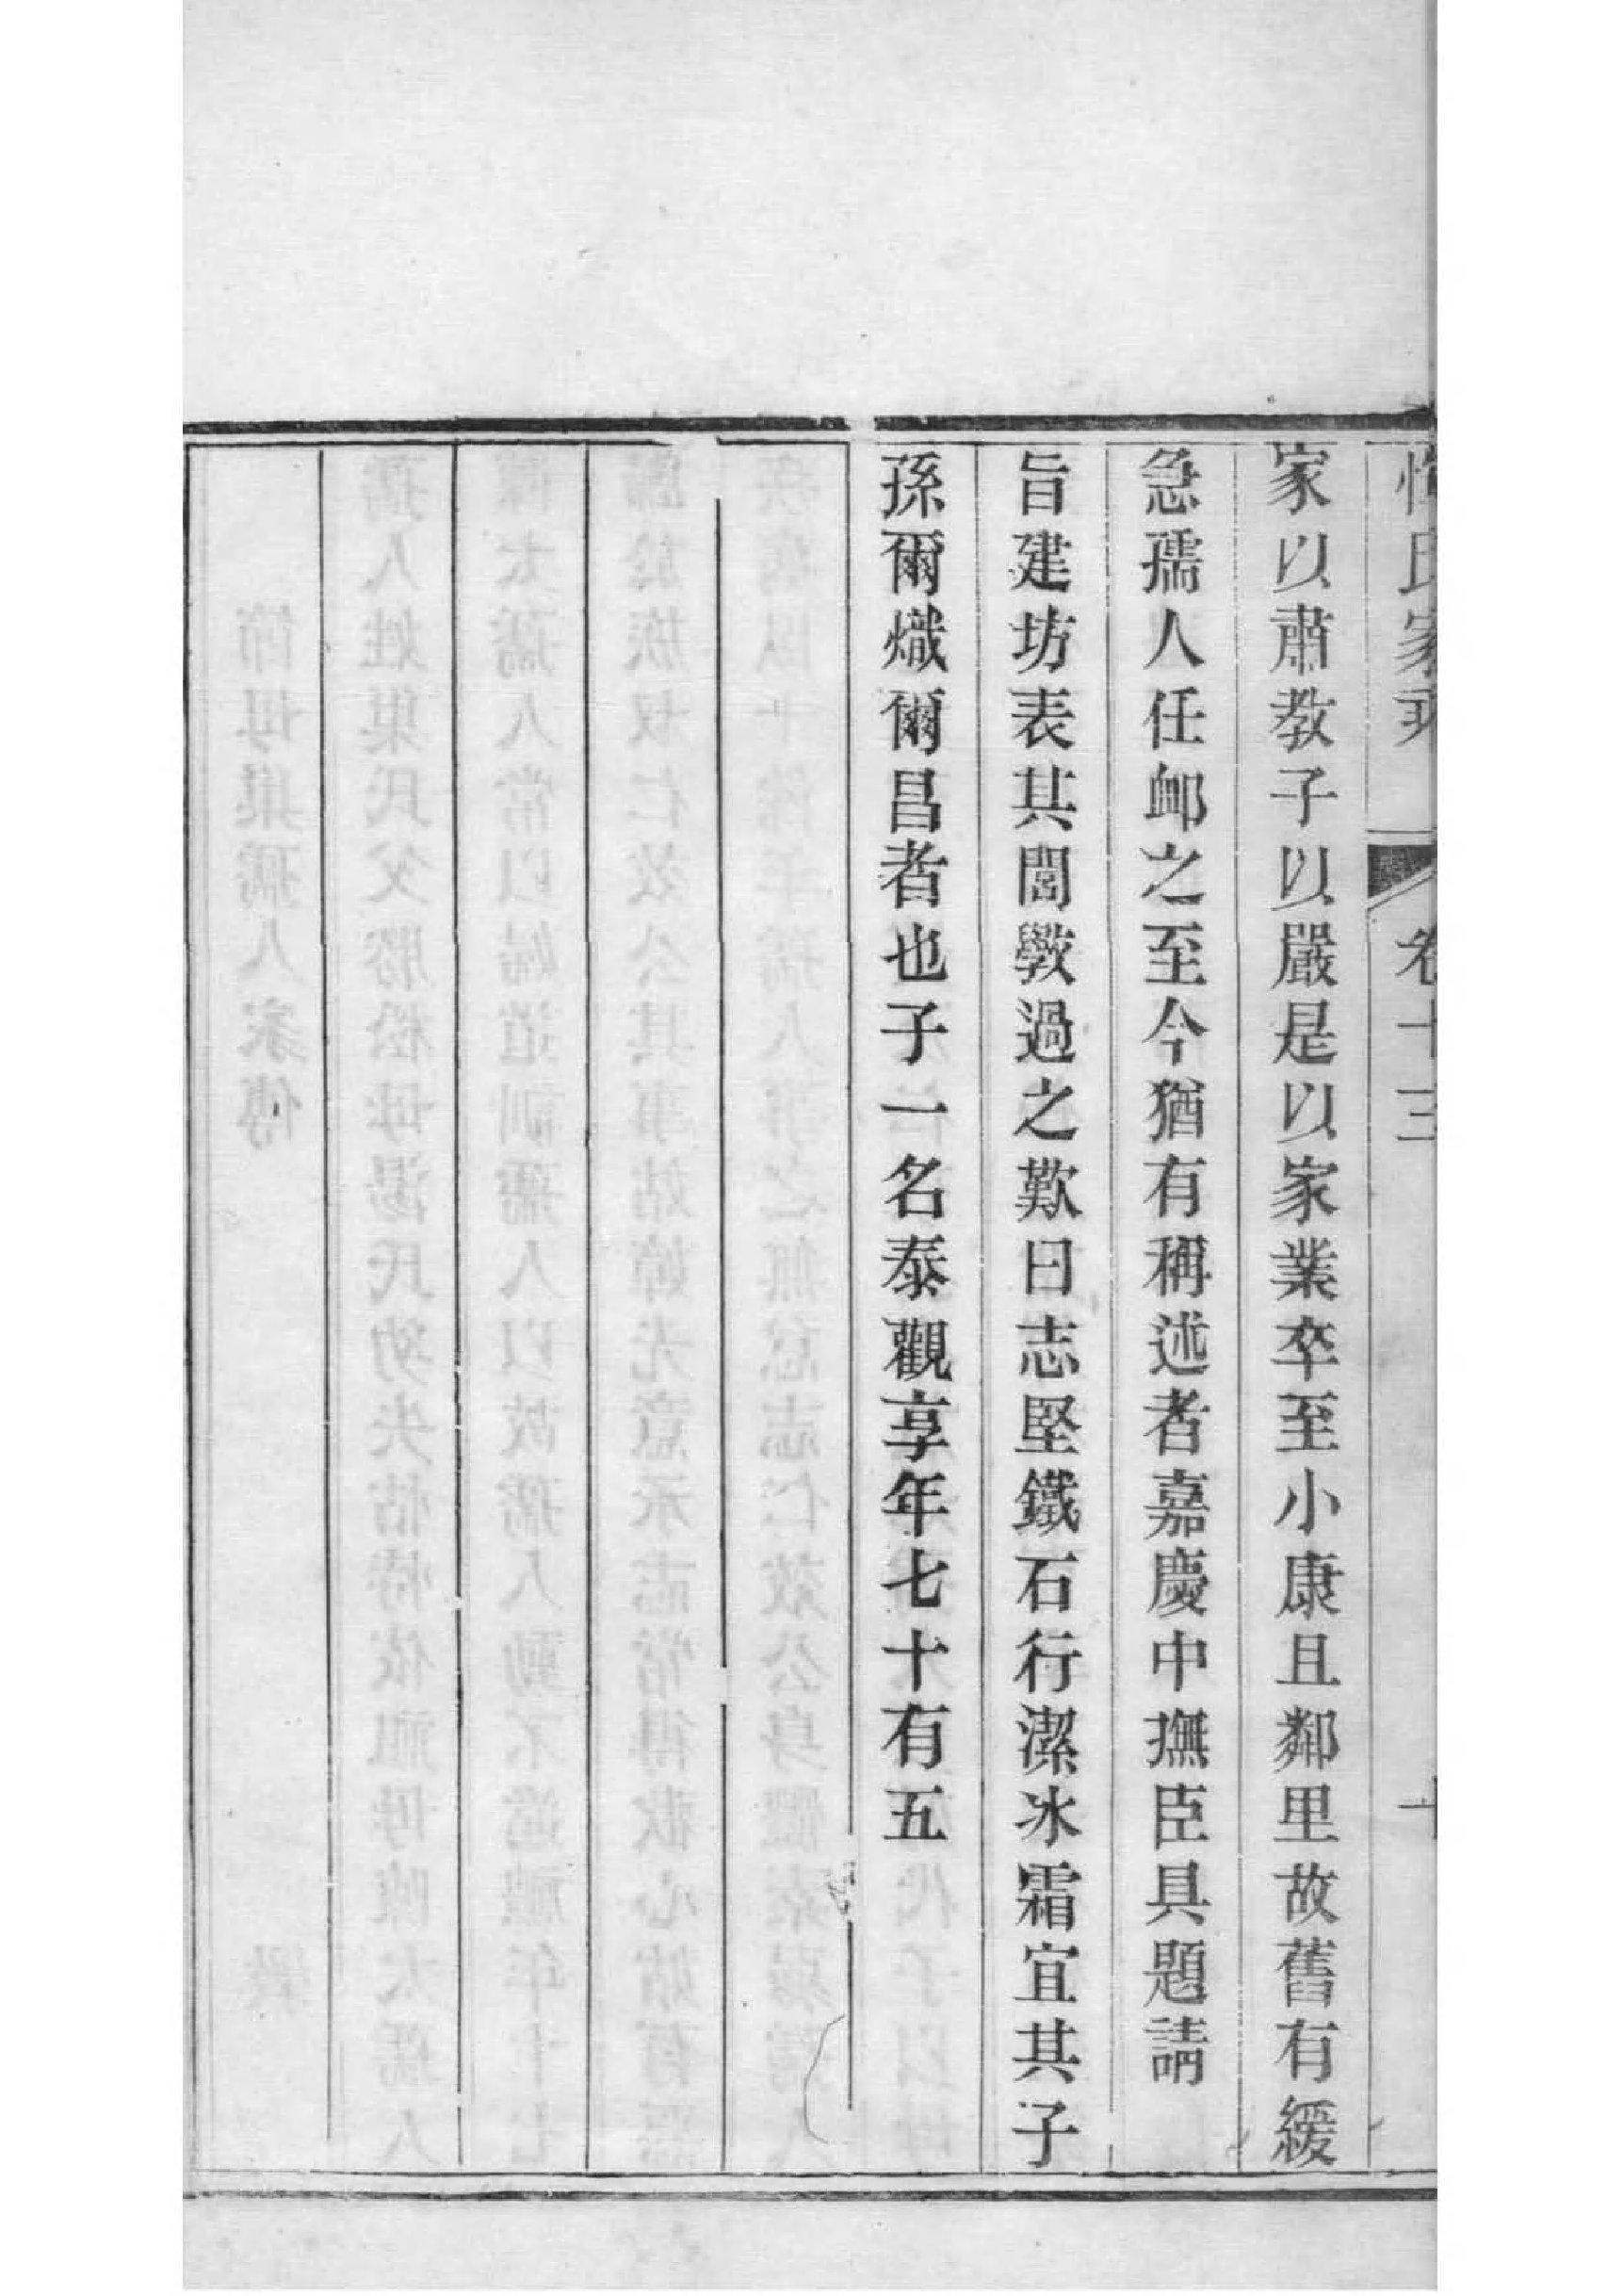 惲氏家乘
卷十三
十
家以肅教子以嚴是以家業卒至小康且鄰里故舊有緩
急孺人任卹之至今猶有稱述者嘉慶中撫臣具題請
旨建坊表其閭斆過之歎曰志堅鐵石行潔冰霜宜其子
孫爾熾爾昌者也子一名泰觀享年七十有五